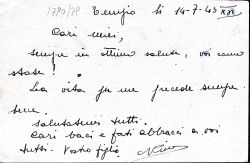 1780/78
Tempio li 14-7-43 XXI
Cari miei,
sempre in ottimo salute, voi come
state?
La vita per me procede sempre
bene.
Salutatemi tutti.
Cari baci e forti abbracci a voi
tutti. Vostro figlio
Nino